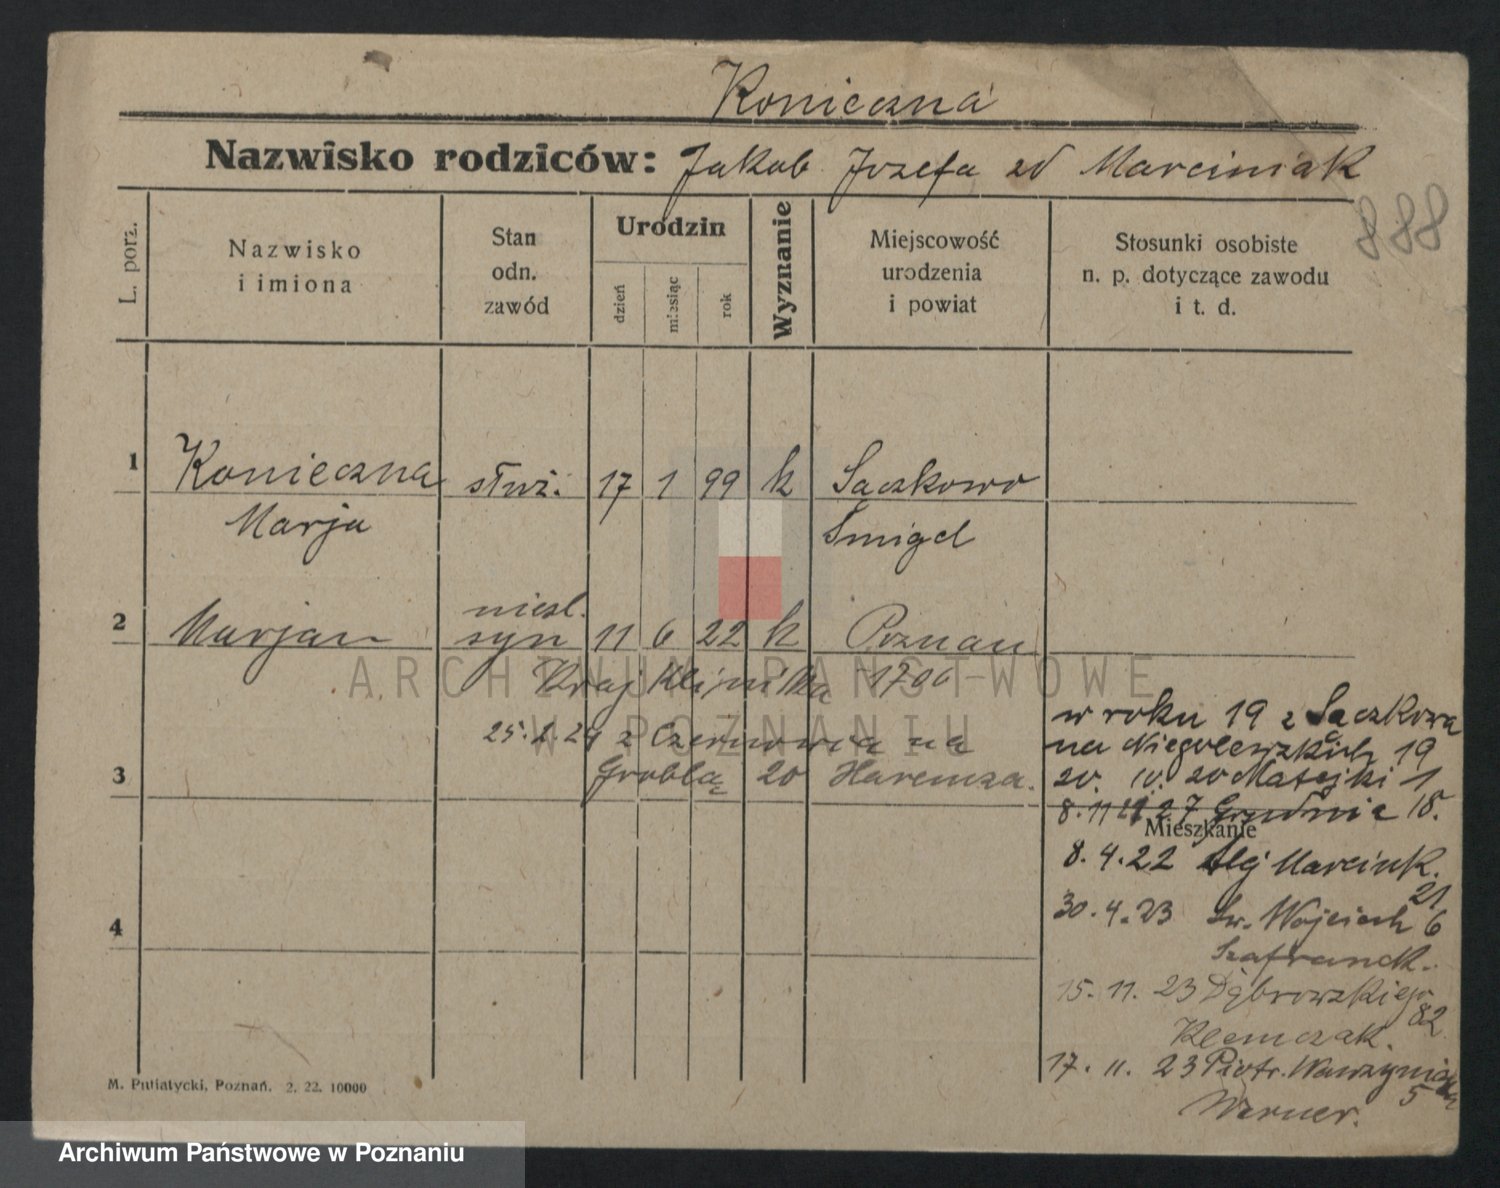 Konieczna
Nazwisko rodziców: Jakub Józefa zd Marciniak
888
L. porz.
Nazwisko
i imiona
Stan
odn.
zawód
Urodzin
dzień
miesiąc
rok
Wyznanie
Miejscowość
urodzenia
i powiat
Stosunki osobiste
n. p. dotyczące zawodu
i t. d.
1 Konieczna służ. 17 1 99 k Saczkowo
Marja Smigel
niesl.
2 Marjan syn 11 6 22 k Poznan
Kraj Klinika 1706
25.2.24 z Czerwonca na
3 Groblą 20 Haremza.
w roku 19 z Saczkowa
na Niegolewskich 19
20. IV. 20 Matejki 1
8.11 27 Grudnia 18.
Mieszkanie
8.4.22 Alej Marcink.
21
4
30.4.23 Św. Wojciech 6
Szafranek.
15.11.23 Dąbrowskiego
82
Klemczak.
17.11.23 Piotr. Wawrzyniaka
5
Werner.
M. Putiatycki, Poznań. 2. 22. 10000
ARCHIWUM PAŃSTWOWE
W POZNANIU
Archiwum Państwowe w Poznaniu